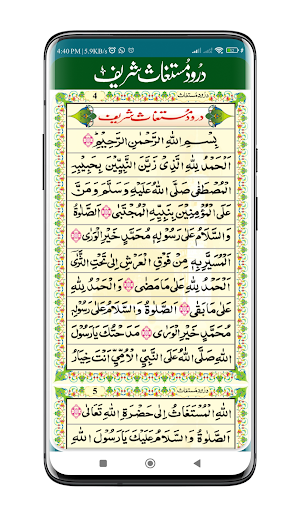 4:40 PM | 5.9KB/s
درود مستغاث شریف
4 درود مستغاث
درود مستغاث شریف
بِسْمِ اللهِ الرَّحْمٰنِ الرَّحِيْمِ
اَلْحَمْدُ لِلّٰهِ الَّذِىْ زَيَّنَ النَّبِيّٖنَ بِحَبِيْبِهِ
الْمُصْطَفٰى صَلَّى اللهُ عَلَيْهِ وَسَلَّمَ وَمَنَّ
عَلَى الْمُؤْمِنِيْنَ بِنَبِيِّهِ الْمُجْتَبٰى اَلصَّلٰوةُ
وَالسَّلَامُ عَلٰى رَسُوْلِهٖ مُحَمَّدٍ خَيْرِ الْوَرٰى
مِنْ فَوْقِ الْعَرْشِ اِلٰى تَحْتِ الثَّرٰى
اَلْحَمْدُ لِلّٰهِ عَلٰى مَا مَضٰى وَالْحَمْدُ لِلّٰهِ
عَلٰى مَا بَقٰى اَلصَّلٰوةُ وَالسَّلَامُ عَلٰى رَسُوْلِهٖ
مُحَمَّدٍ خَيْرِ الْوَرٰى مَدَحْتُكَ يَا رَسُوْلَ
اللهِ صَلَّى اللهُ عَلَى النَّبِىِّ الْاُمِّىِّ اَنْتَ خِيَارُ
5 درود مستغاث
اللهِ الْمُسْتَغَاثُ اِلٰى حَضْرَةِ اللهِ تَعَالٰى
اَلصَّلٰوةُ وَالسَّلَامُ عَلَيْكَ يَا رَسُوْلَ اللهِ